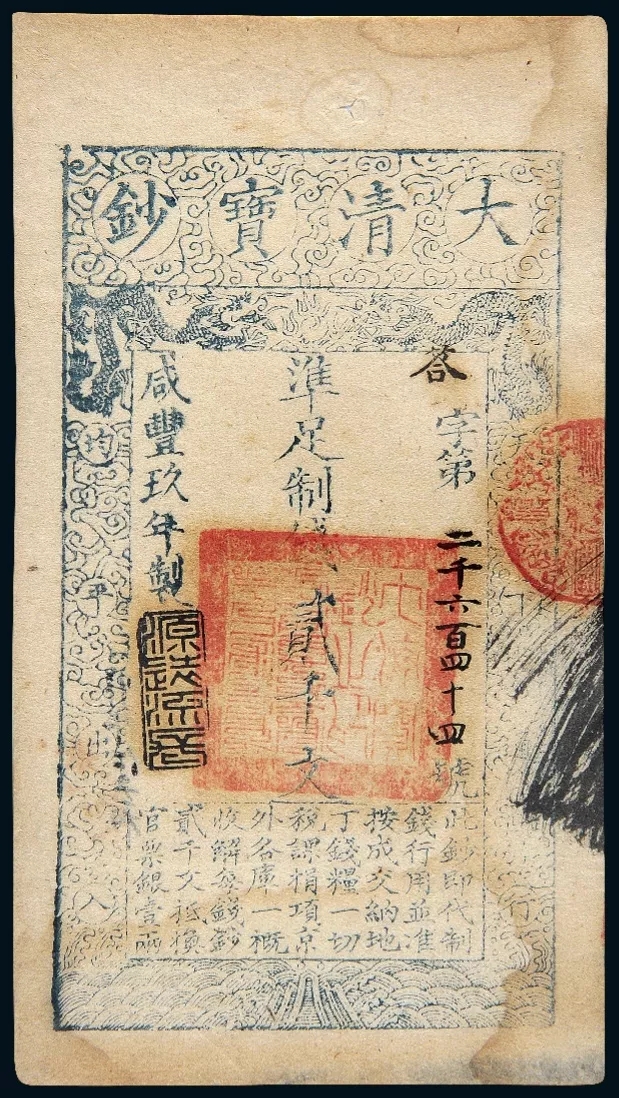 大清寶鈔
答字第二千六百四十四號
準足制錢貳千文
咸豐玖年製
均平出入
此鈔即代制
錢行用並準
按成交納地
丁錢糧一切
稅課捐項京
外各庫一概
收解每錢鈔
貳千文抵換
官票銀壹兩